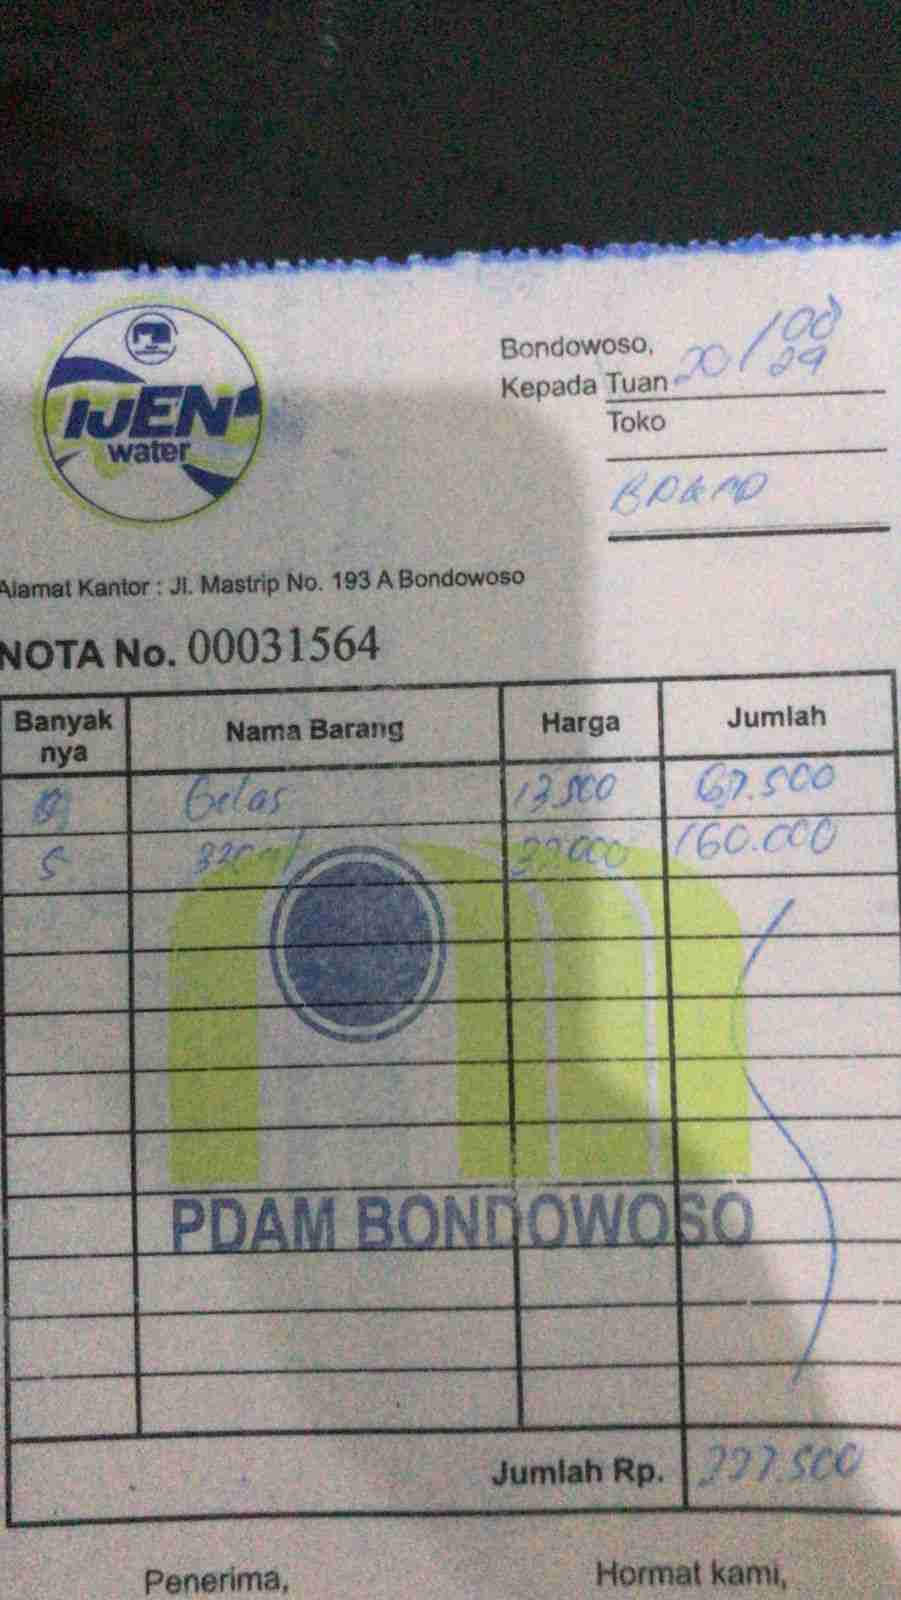 IJEN
water
Bondowoso,
20/08
24
Kepada Tuan
Toko
Alamat Kantor : Jl. Mastrip No. 193 A Bondowoso
NOTA No. 00031564
Banyak nya Nama Barang Harga Jumlah
Gelas 13.500 67.500
5 330ml 32.000 160.000
PDAM BONDOWOSO
Jumlah Rp. 227.500
Penerima, Hormat kami,